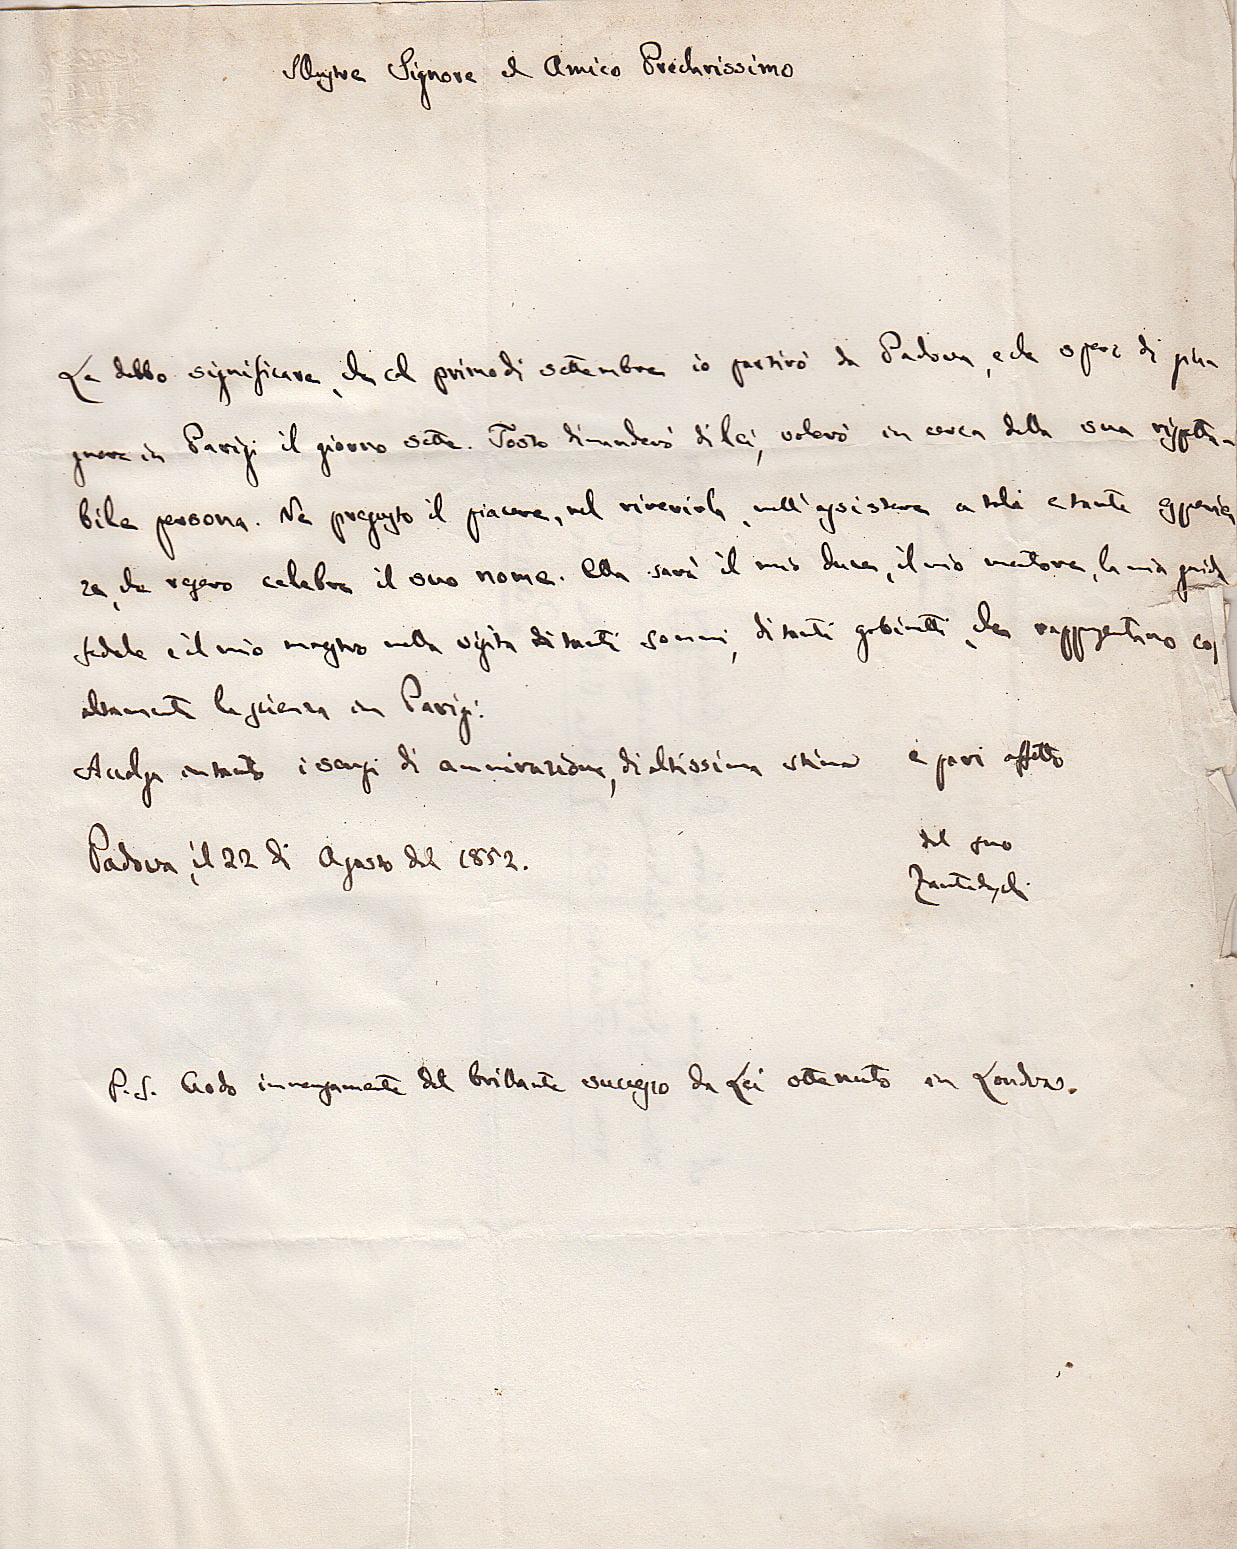 Illustre Signore ed Amico Preclarissimo
Le debbo significare, che col primo di settembre io partirò da Padova, e che spero di giun
gnere in Parigi il giorno sette. Tosto dimanderò di Lei, volerò in cerca della sua rispetta-
bile persona. Ne pregusto il piacere, nel riverirla, nell'assistere a tale e tante esperien
ze, che resero celebre il suo nome. Ella sarà il mio duce, il mio mentore, la mia guida
fedele e il mio maestro nella visita di tanti sommi, di tanti gabinetti, che rappresentano così
altamente la scienza in Parigi.
Accolga intanto i sensi di ammirazione, di altissima stima e pari affetto
Padova, il 22 di Agosto del 1852.
del suo
Zantedeschi
P.S. Godo immensamente del brillante successo da Lei ottenuto in Londra.